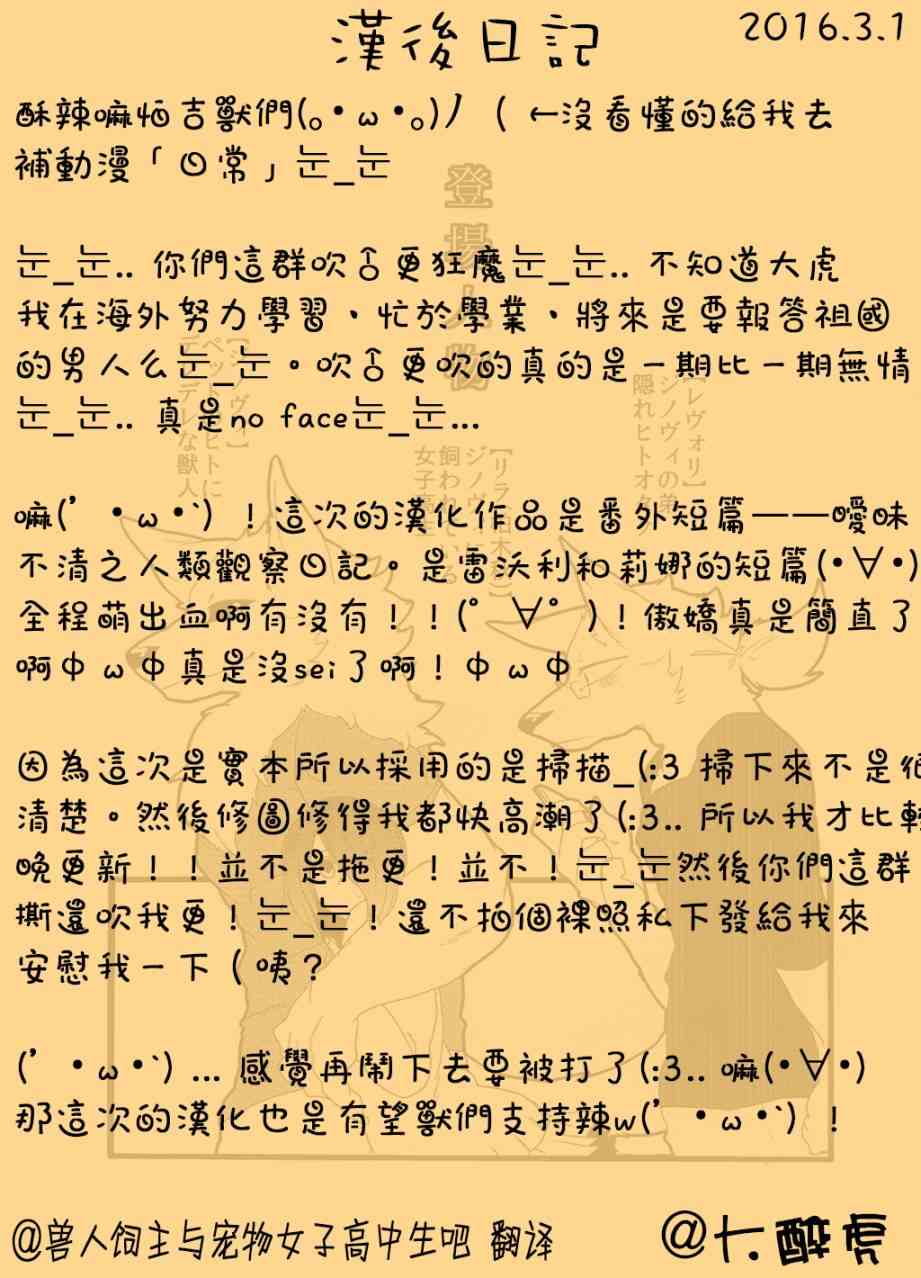 漢後日記
2016.3.1
酥辣嘛怕吉獸們(｡･ω･｡)ﾉ （←沒看懂的給我去
補動漫「日常」눈_눈
눈_눈.. 你們這群吹合更狂魔눈_눈.. 不知道大虎
我在海外努力學習、忙於學業、將來是要報答祖國
的男人么눈_눈。吹合更吹的真的是一期比一期無情
눈_눈.. 真是no face눈_눈...
嘛(′・ω・‵) ！這次的漢化作品是番外短篇——曖昧
不清之人類觀察日記。是雷沃利和莉娜的短篇(・∀・)
全程萌出血啊有沒有！！(ﾟ∀ﾟ)！傲嬌真是簡直了
啊ФωФ真是沒sei了啊！ФωФ
因為這次是實本所以採用的是掃描_(:3 掃下來不是很
清楚。然後修圖修得我都快高潮了(:3.. 所以我才比較
晚更新！！並不是拖更！並不！눈_눈然後你們這群
撕還吹我更！눈_눈！還不拍個裸照私下發給我來
安慰我一下（咦？
(′・ω・‵) ... 感覺再鬧下去要被打了(:3.. 嘛(・∀・)
那這次的漢化也是有望獸們支持辣w(′・ω・‵) ！
登場人物
【レヴォリ】
シノヴィの弟
隠れヒトオタ
飼われている
女子高生
ペットヒトに
デレデレな獣人
@兽人饲主与宠物女子高中生吧 翻译
@七.醉虎